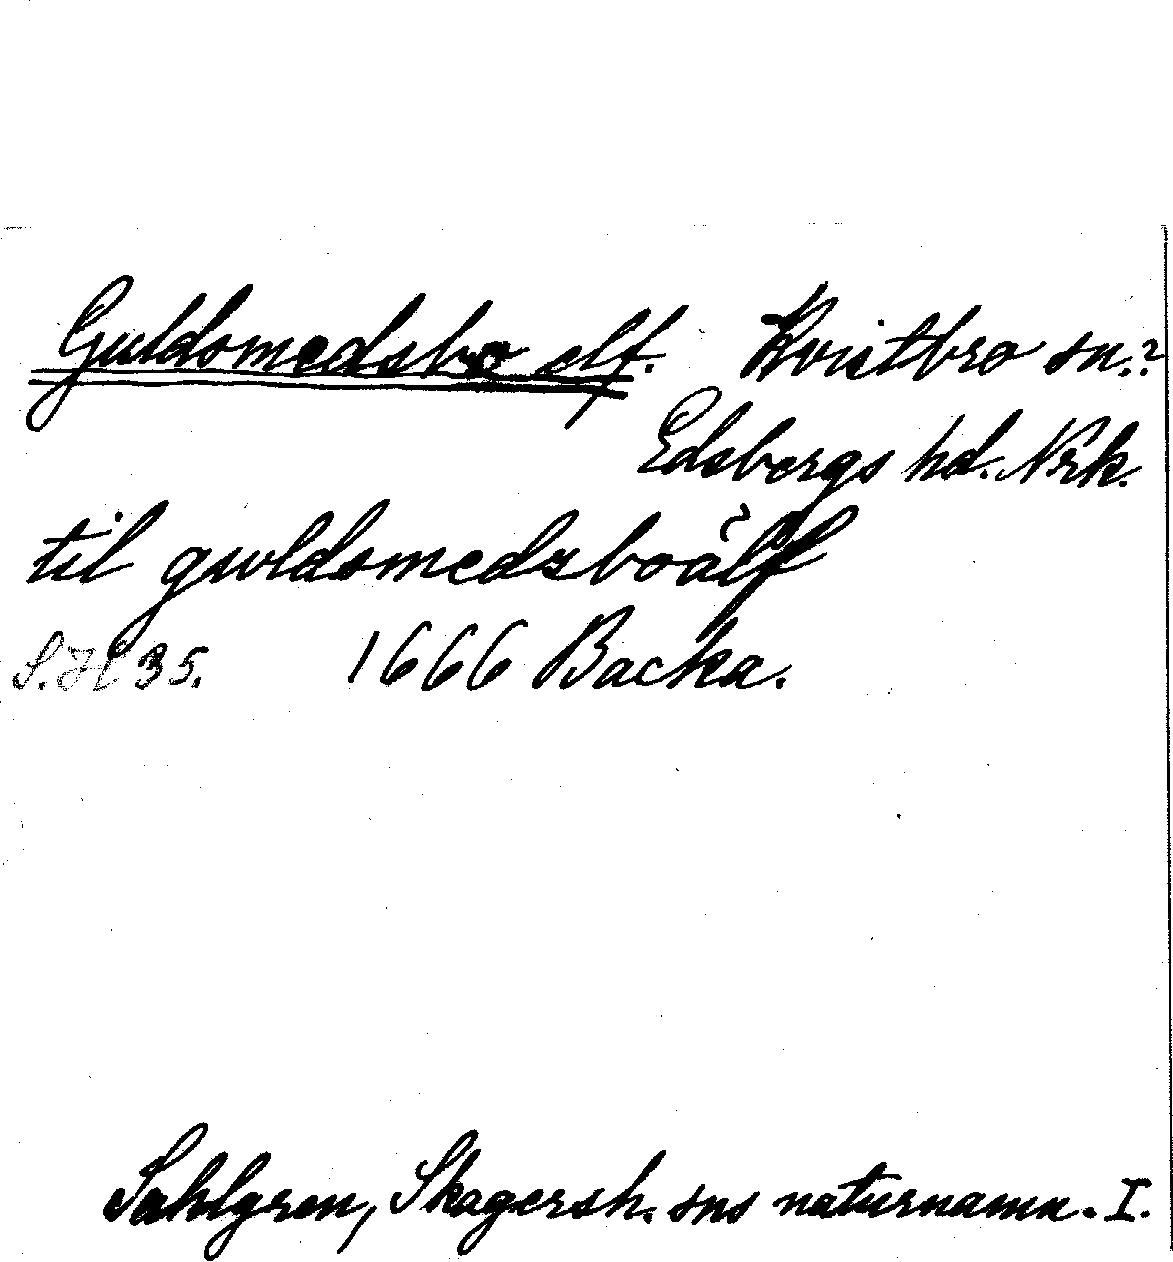 Guldsmedsbo elf. Kvistbro sn.?
Edsbergs hd. Nrk.
til guldsmedzboälf
S.H 35. 1666 Backa.
Sahlgren, Skagersh. sns naturnamn. I.